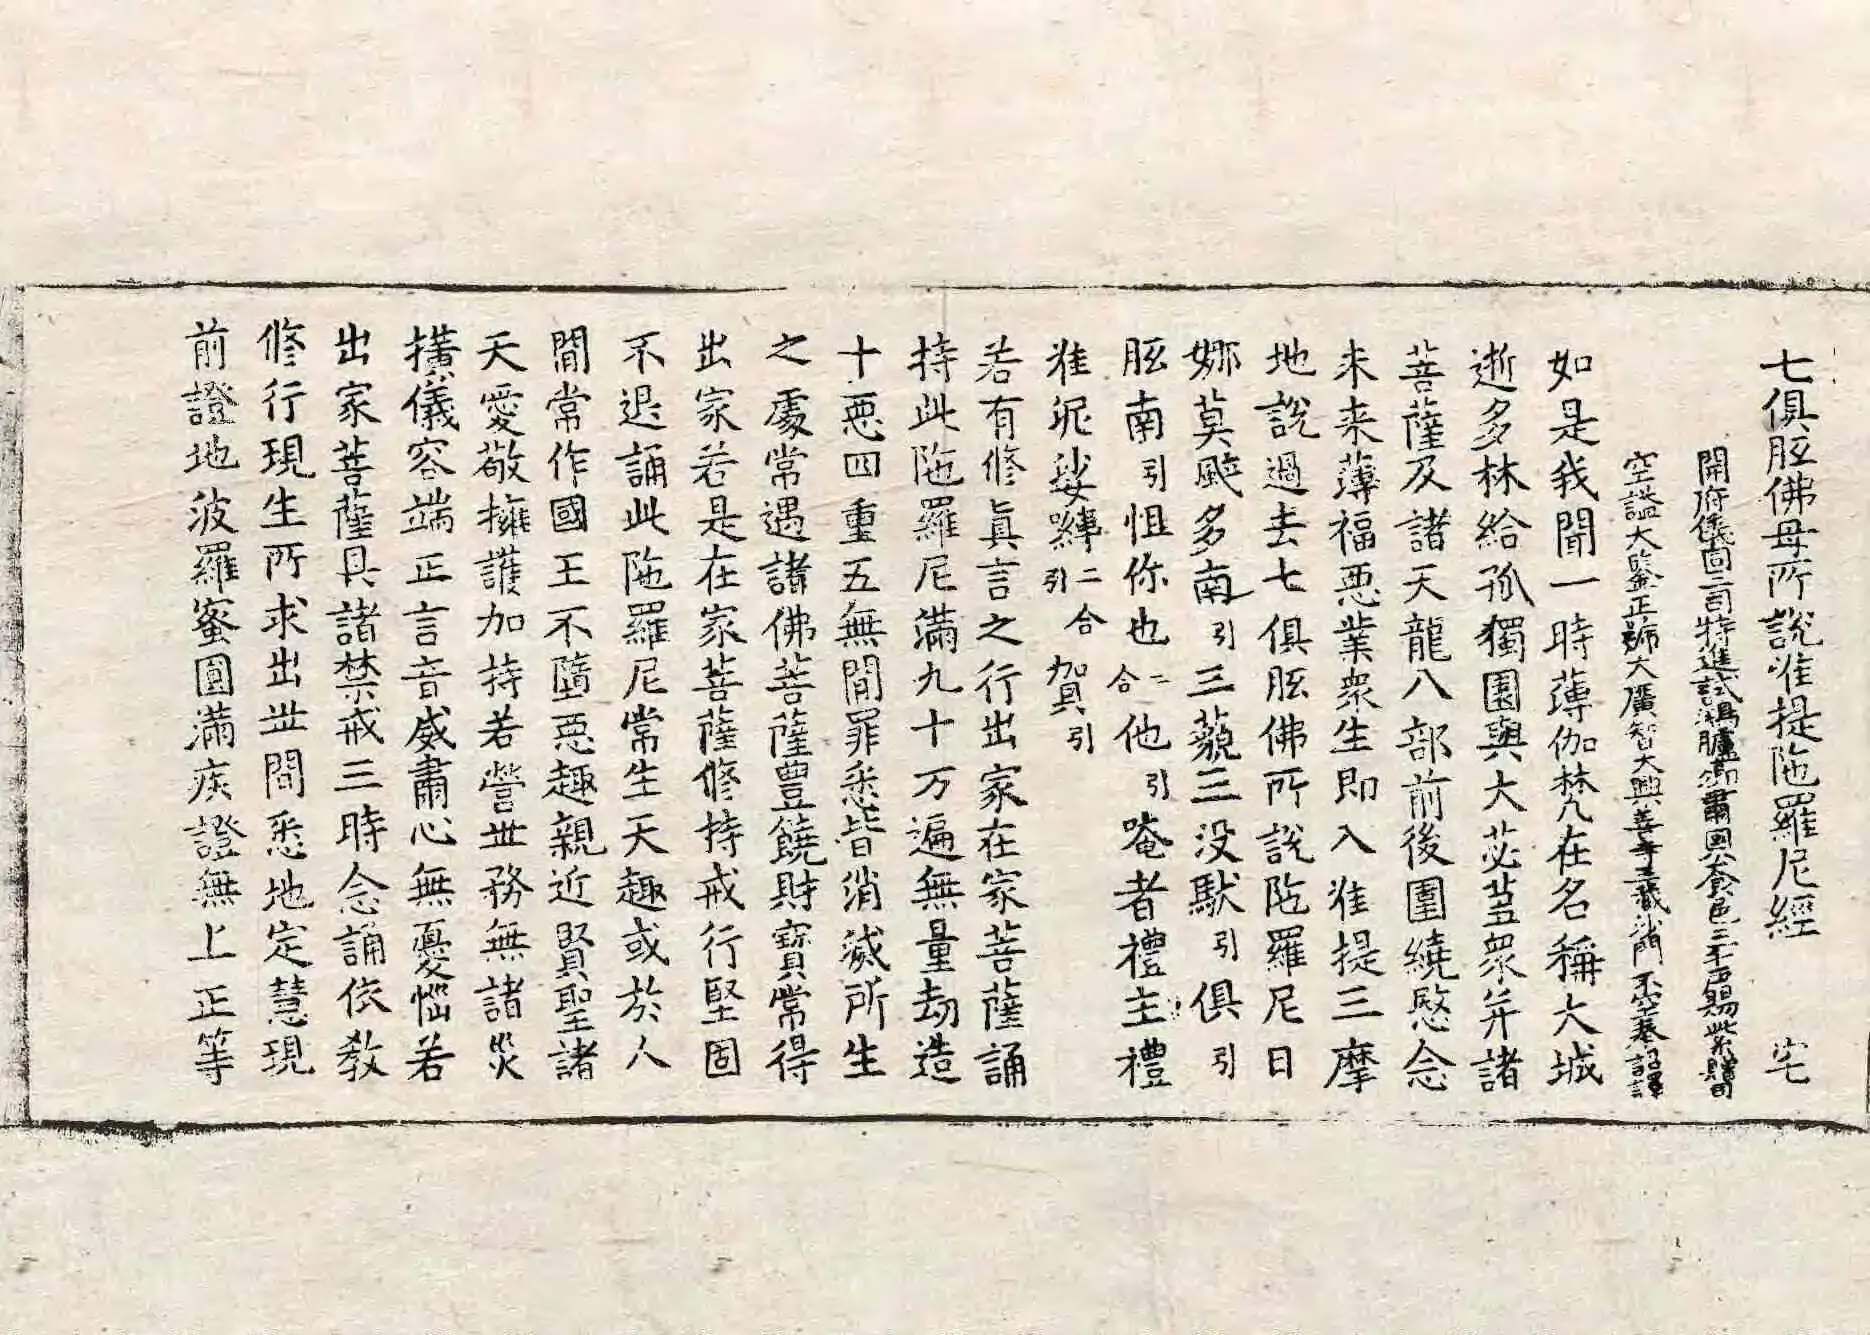 七俱胝佛母所說准提陁羅尼經　宅
開府儀同三司特進試鴻臚卿肅國公食邑三千戶賜紫贈司
空謚大鑒正號大廣智大興善寺三藏沙門不空奉詔譯
如是我聞一時薄伽梵在名稱大城
逝多林給孤獨園與大苾蒭衆并諸
菩薩及諸天龍八部前後圍繞愍念
未来薄福惡業衆生即入准提三摩
地說過去七俱胝佛所說陁羅尼曰
娜莫颯多南引三藐三没馱引俱引
胝南引怚你也二合他引唵者禮主禮
准泥娑嚩二合引賀引
若有修眞言之行出家在家菩薩誦
持此陁羅尼滿九十万遍無量劫造
十惡四重五無間罪悉皆消滅所生
之處常遇諸佛菩薩豊饒財寶常得
出家若是在家菩薩修持戒行堅固
不退誦此陁羅尼常生天趣或於人
間常作國王不墮惡趣親近賢聖諸
天愛敬擁護加持若營世務無諸災
横儀容端正言音威肅心無憂惱若
出家菩薩具諸禁戒三時念誦依教
修行現生所求出世間悉地定慧現
前證地波羅蜜圓滿疾證無上正等